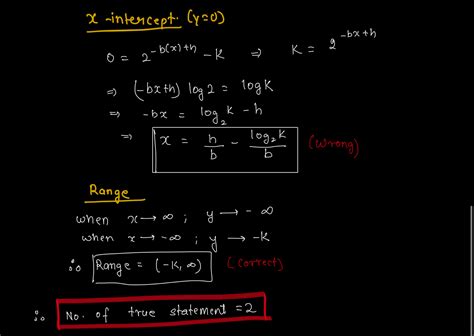 x-intercept. (y=0)
0 = 2^{-b(x)+h} - K ⇒ K = 2^{-bx+h}
⇒ (-bx+h) log 2 = log K
⇒ -bx = log_2 K - h
⇒ x = h/b - log_2 K/b (Wrong)
Range
when x → ∞ ; y → - ∞
when x → -∞ ; y → -K
∴ Range = (-K, ∞) (Correct)
∴ No. of true statement = 2